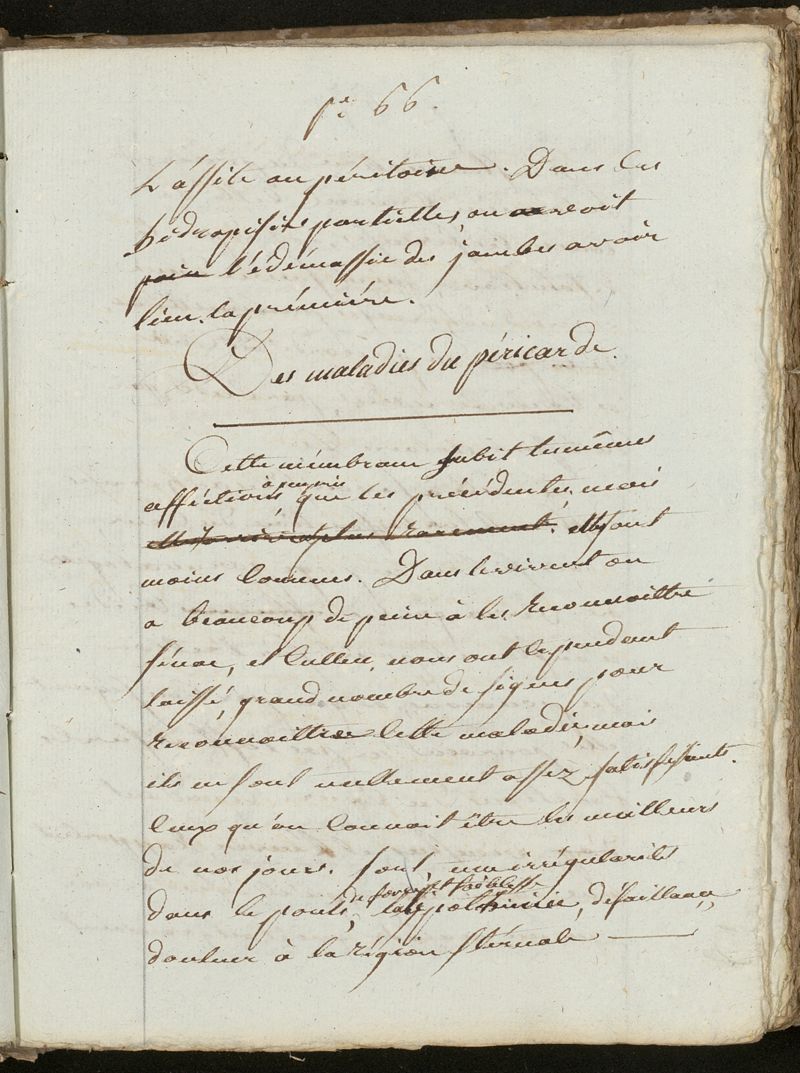 pe. 66.
L'assite au péritoine. Dans les
hidropisies partielles, on voit
l'édémassie des jambes avoir
lieu la prémiére.
Des maladies du péricarde.
Cette membrane subit les mêmes
à peu près
affections que les précédentes, mais
elles sont
moins comunes. Dans le vivant on
a beaucoup de peine à les reconnoittre
sénac, et Cullen, nous ont cependant
laissé, grand nombre de signes pour
reconnoittre cette maladie, mais
ils ne sont nullement assez satisfesants.
Ceux qu'on connoit être les meilleurs
de nos jours. sont une irrégularités
et foiblesse
dans le pouls, défaillance,
douleur à la région sternale